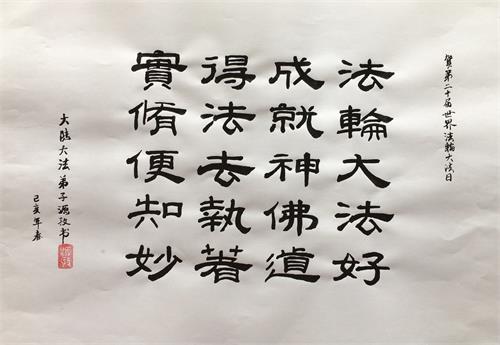 賀第二十屆世界法輪大法日
法輪大法好
成就神佛道
得法去執著
實脩便知妙
大陸大法弟子源玫书
己亥年春